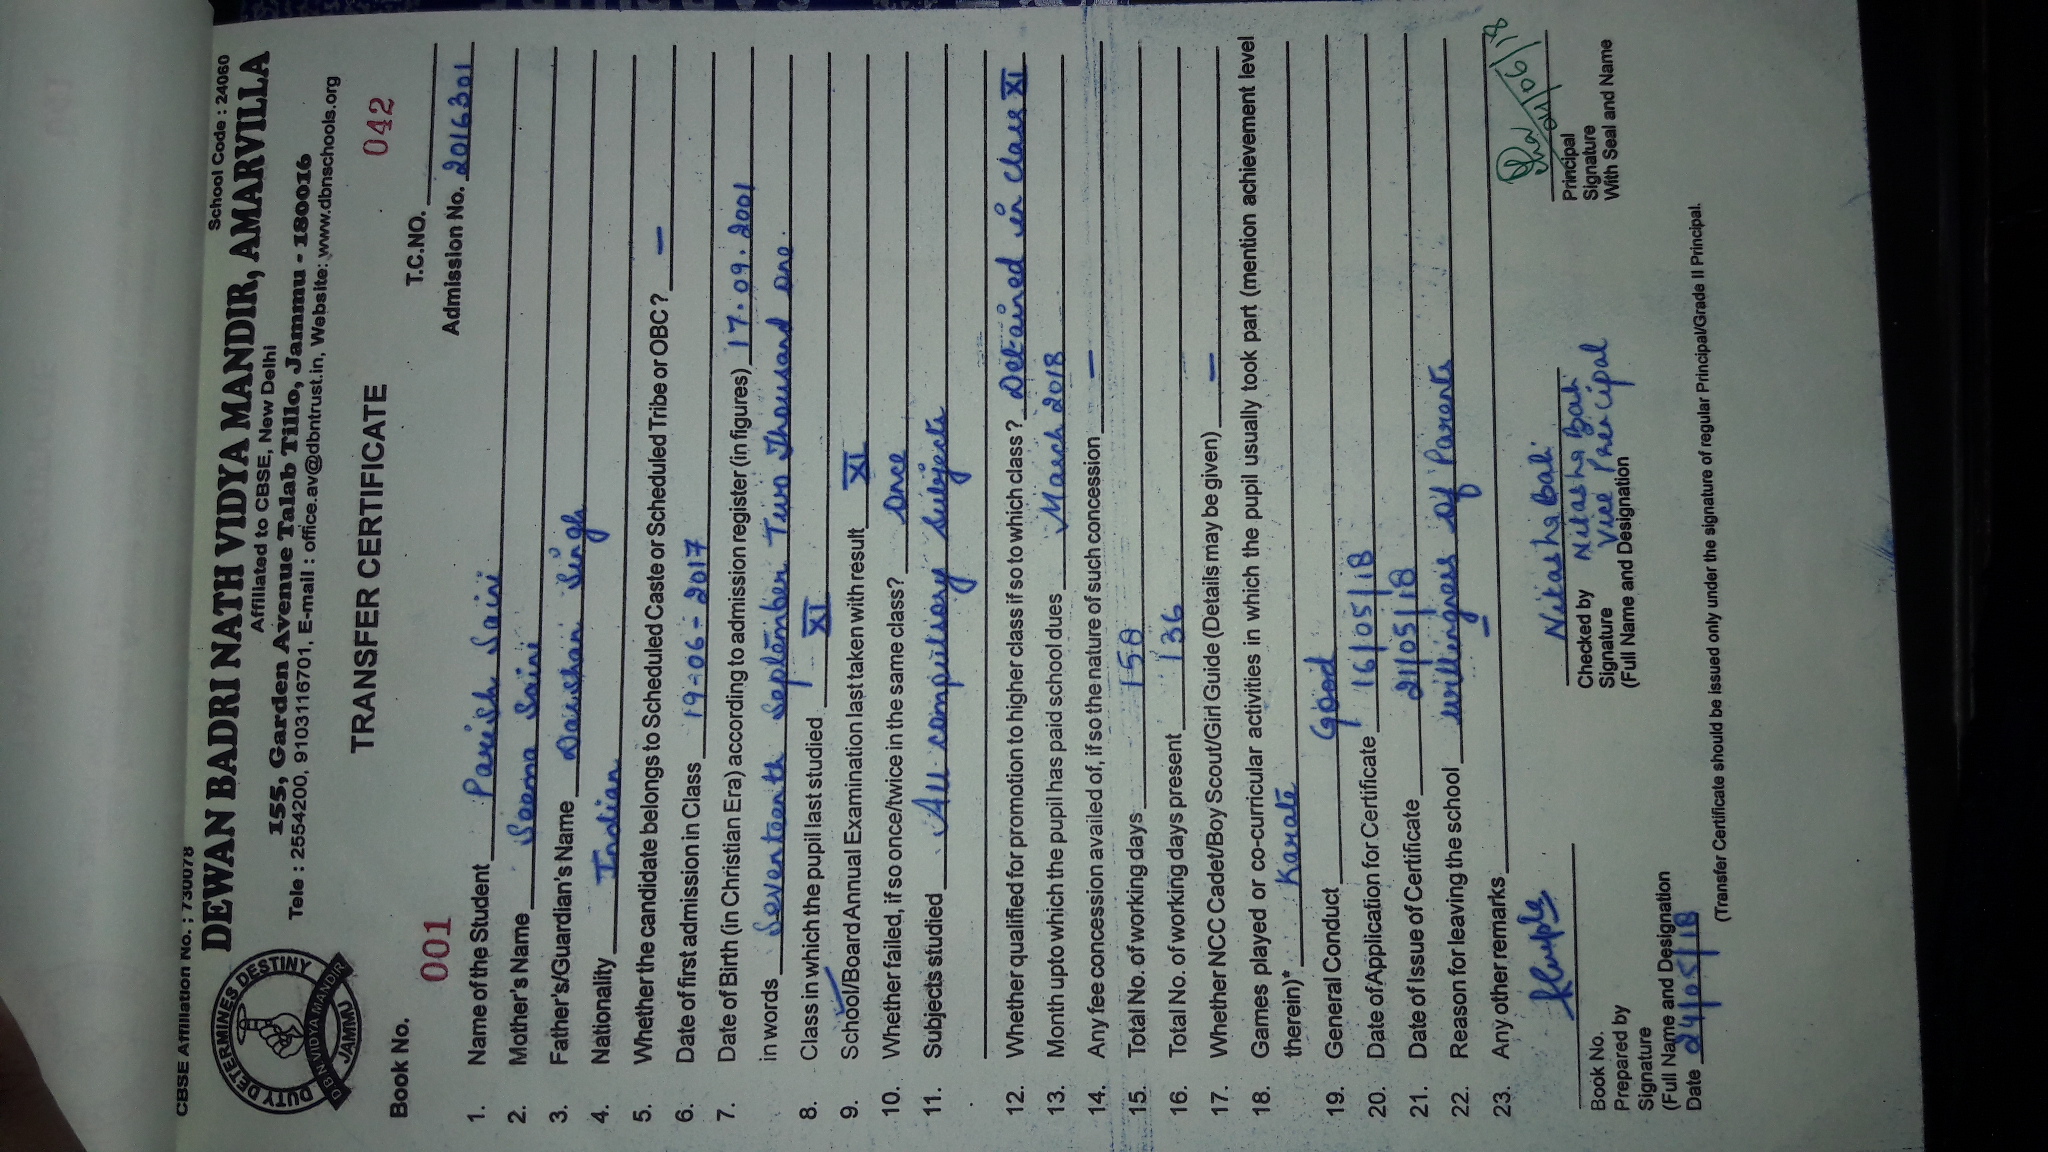 CBSE Affiliation No. : 730078 School Code : 24060
DEWAN BADRI NATH VIDYA MANDIR, AMARVILLA
Affiliated to CBSE, New Delhi
155, Garden Avenue Talab Tillo, Jammu - 180016
Tele : 2554200, 9103116701, E-mail : office.av@dbntrust.in, Website: www.dbnschools.org
DUTY DETERMINES DESTINY
DBN VIDYA MANDIR
JAMMU
TRANSFER CERTIFICATE 042
Book No. 001 T.C.NO.
Admission No. 2016301
1. Name of the Student Parish Saini
2. Mother's Name Seema Saini
3. Father's/Guardian's Name Darshan Singh
4. Nationality Indian
5. Whether the candidate belongs to Scheduled Caste or Scheduled Tribe or OBC? —
6. Date of first admission in Class 19-06-2017
7. Date of Birth (in Christian Era) according to admission register (in figures) 17.09.2001
in words Seventeenth September Two Thousand one.
8. Class in which the pupil last studied XI
9. School/Board Annual Examination last taken with result XI
10. Whether failed, if so once/twice in the same class? Once
11. Subjects studied All compulsory subjects
12. Whether qualified for promotion to higher class if so to which class? Detained in class XI
13. Month upto which the pupil has paid school dues March 2018
14. Any fee concession availed of, if so the nature of such concession —
15. Total No. of working days 158
16. Total No. of working days present 136
17. Whether NCC Cadet/Boy Scout/Girl Guide (Details may be given) —
18. Games played or co-curricular activities in which the pupil usually took part (mention achievement level
therein)* Karate
19. General Conduct Good
20. Date of Application for Certificate 16/05/18
21. Date of Issue of Certificate 21/05/18
22. Reason for leaving the school willingness of Parents
23. Any other remarks —
01/06/18
Nitasha Bali
Book No.
Prepared by
Signature
(Full Name and Designation
Date 24/05/18
Checked by Nitasha Bali
Signature Vice Prencipal
(Full Name and Designation
Principal
Signature
With Seal and Name
(Transfer Certificate should be issued only under the signature of regular Principal/Grade II Principal.